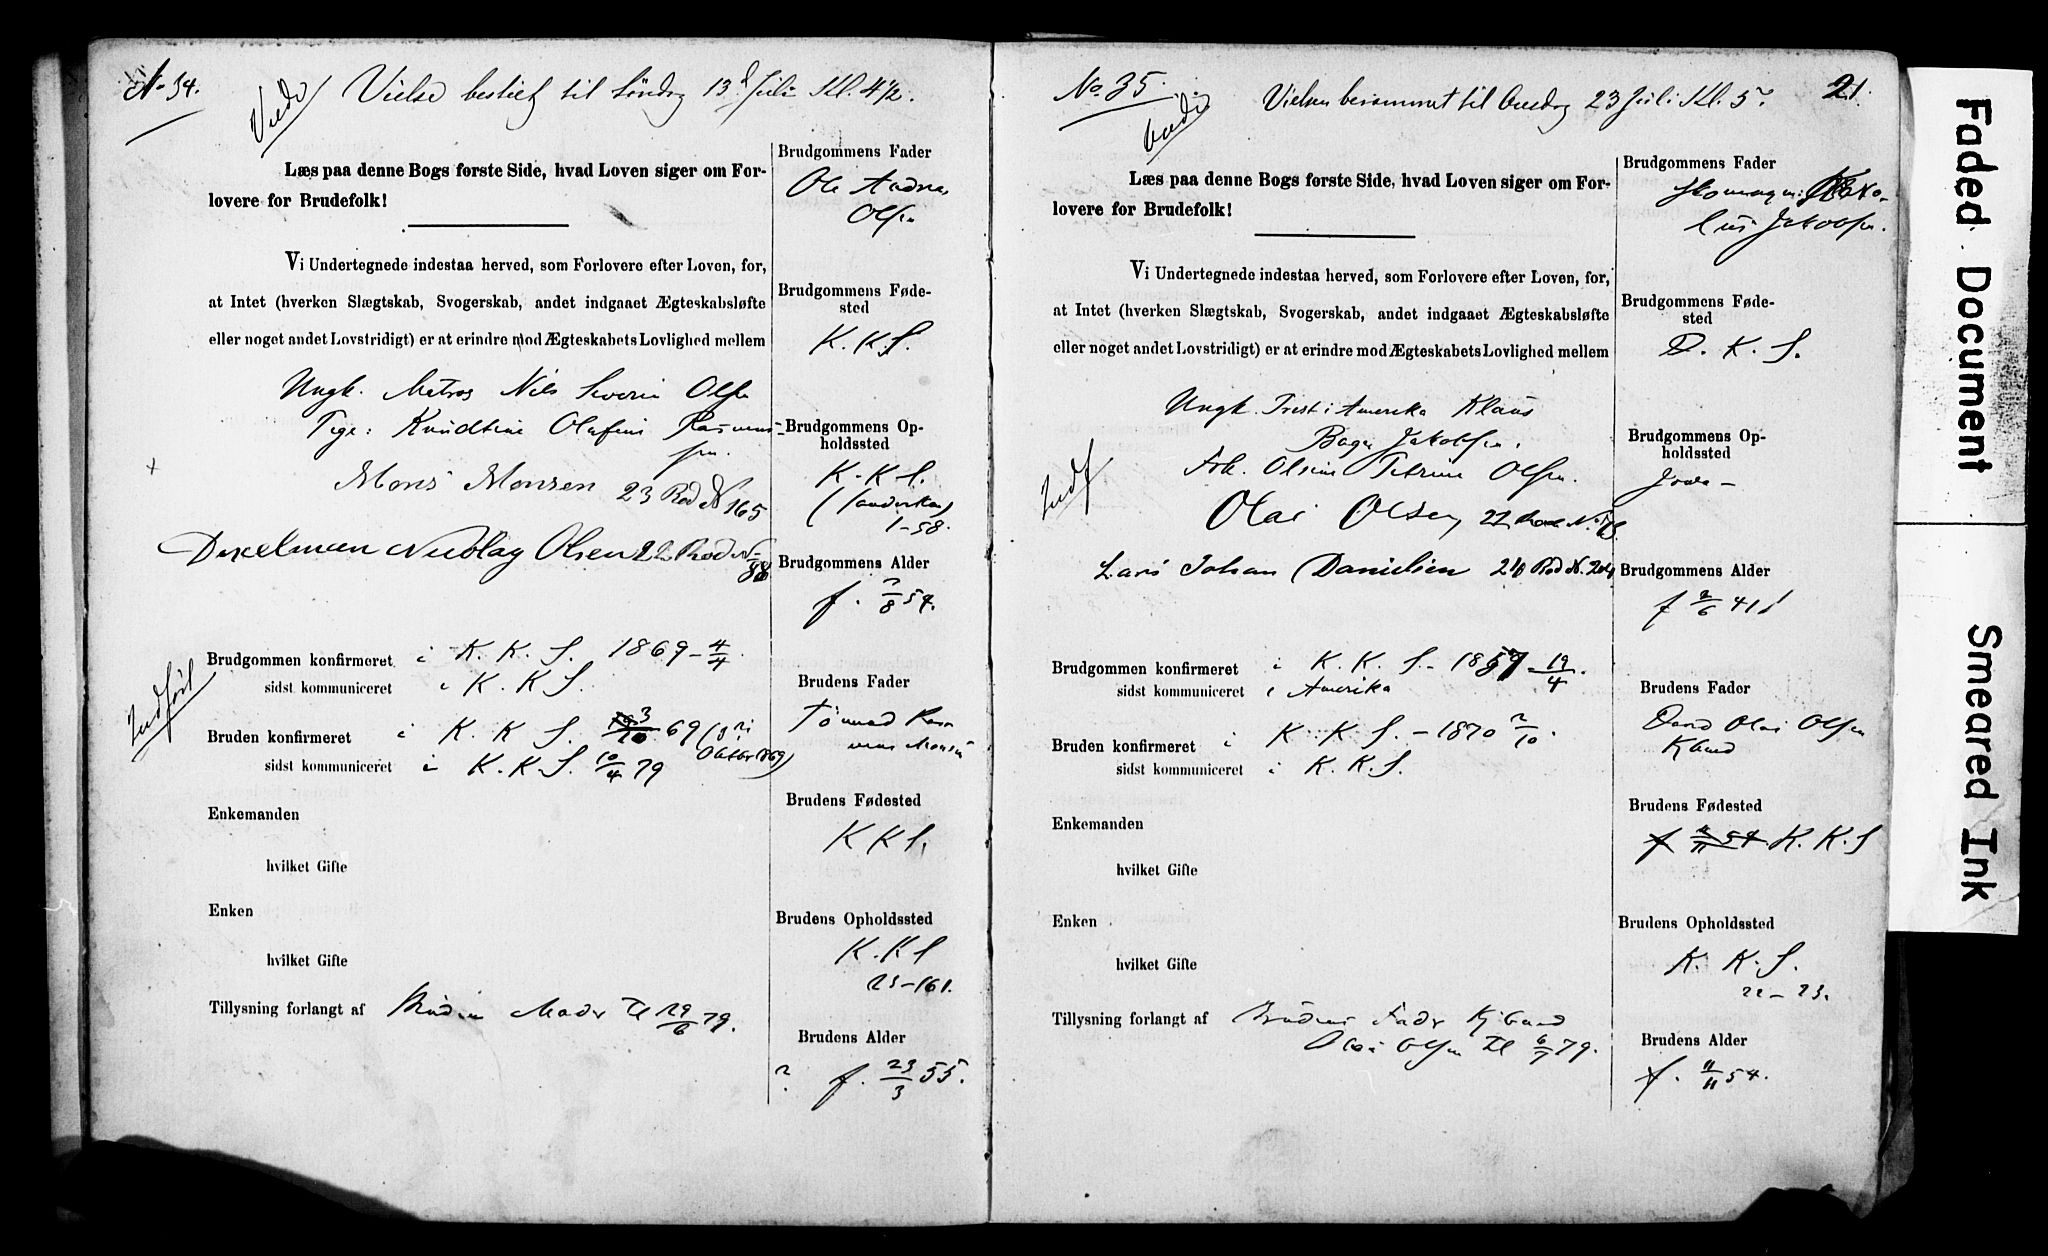 No 34.
Viede
Vielse bestilt til Søndag 13d Juli Kl. 4½.
Læs paa denne Bogs første Side, hvad Loven siger om For-
lovere for Brudefolk!
Vi Undertegnede indestaa herved, som Forlovere efter Loven, for,
at Intet (hverken Slægtskab, Svogerskab, andet indgaaet Ægteskabsløfte
eller noget andet Lovstridigt) er at erindre mod Ægteskabets Lovlighed mellem
Ungk. Matros Nils Severin Olsen
Pige: Knudtine Olafine Rasmus-
sen.
Mons Monsen 23 Rode N 165
Nicolay Olsen 22 Rode N
88
Brudgommen konfirmeret i K. K. S. 1869 - 4/4.
sidst kommuniceret i K. K S.
Indført
Bruden konfirmeret i K. K S. 3/10 69 (3die
Oktbr 1869)
sidst kommuniceret i K. K. S. 10/4 79
Enkemanden
hvilket Gifte
Enken
hvilket Gifte
Tillysning forlangt af Brudens Moder Tl 29/6 79.
Brudgommens Fader
Ole Andreas
Olsen
Brudgommens Føde-
sted
K. K. S.
Brudgommens Op-
holdssted
K. K S.
1-58.
Brudgommens Alder
f. 7/8 54.
Brudens Fader
Tønnes Ras-
mus Monsen
Brudens Fødested
K K S.
Brudens Opholdssted
K. K S
23-161.
Brudens Alder
? f. 23/3 55.
No. 35.
Viede
Vielsen berammet til Onsdag 23 Juli Kl. 5.
21.
Læs paa denne Bogs første Side, hvad Loven siger om For-
lovere for Brudefolk!
Vi Undertegnede indestaa herved, som Forlovere efter Loven, for,
at Intet (hverken Slægtskab, Svogerskab, andet indgaaet Ægteskabsløfte
eller noget andet Lovstridigt) er at erindre mod Ægteskabets Lovlighed mellem
Ungk. Præst i Amerika Klaus
Jakobsen.
Frk. Olsine Petrine Olsen.
Indf
Olai Olsen, 22 Rode N.
Lars Johan Danielsen 20 Rod N. 204
Brudgommen konfirmeret i K. K. S - 1857 - 19/4.
sidst kommuniceret i Amerika
Bruden konfirmeret i K K S. - 1870 2/10.
sidst kommuniceret i K. K. S.
Enkemanden
hvilket Gifte
Enken
hvilket Gifte
Tillysning forlangt af Brudens Fader Kjbmd
Olai Olsen Tl 6/7 79.
Brudgommens Fader
Skomager
Jakobsen.
Brudgommens Føde-
sted
D. K. S.
Brudgommens Op-
holdssted
Jowa -
Brudgommens Alder
f 2/6 41
Brudens Fader
Olai Olsen
Kjbmd
Brudens Fødested
f 11/11 54. K. K. S
Brudens Opholdssted
K. K. S.
22-23.
Brudens Alder
f. 11/11 54.
Faded Document
Smeared Ink